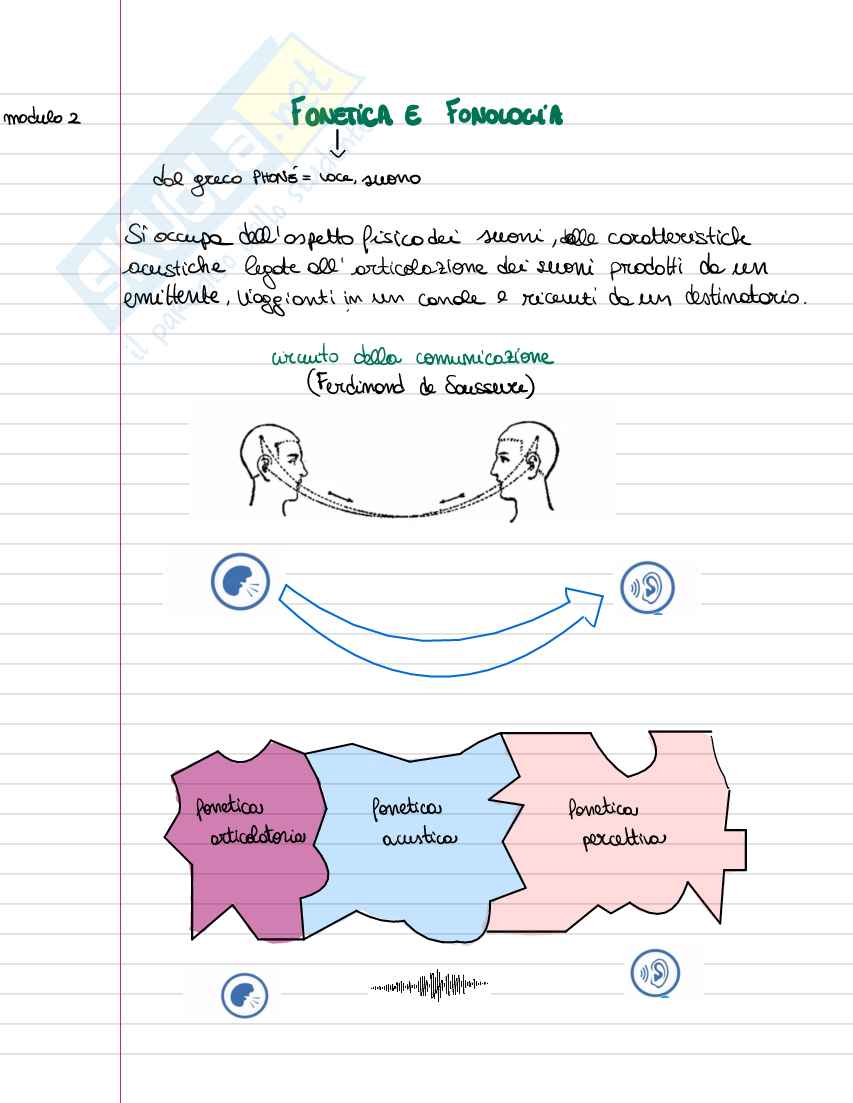 modulo 2
FONETICA E FONOLOGIA
dal greco PHONÉ = voce, suono
Si occupa dell'aspetto fisico dei suoni, delle caratteristiche
acustiche legate all'articolazione dei suoni prodotti da un
emittente, viaggianti in un canale e ricevuti da un destinatario.
circuito della comunicazione
(Ferdinand de Saussure)
fonetica
articolatoria
fonetica
acustica
fonetica
percettiva
SKUOLA.net